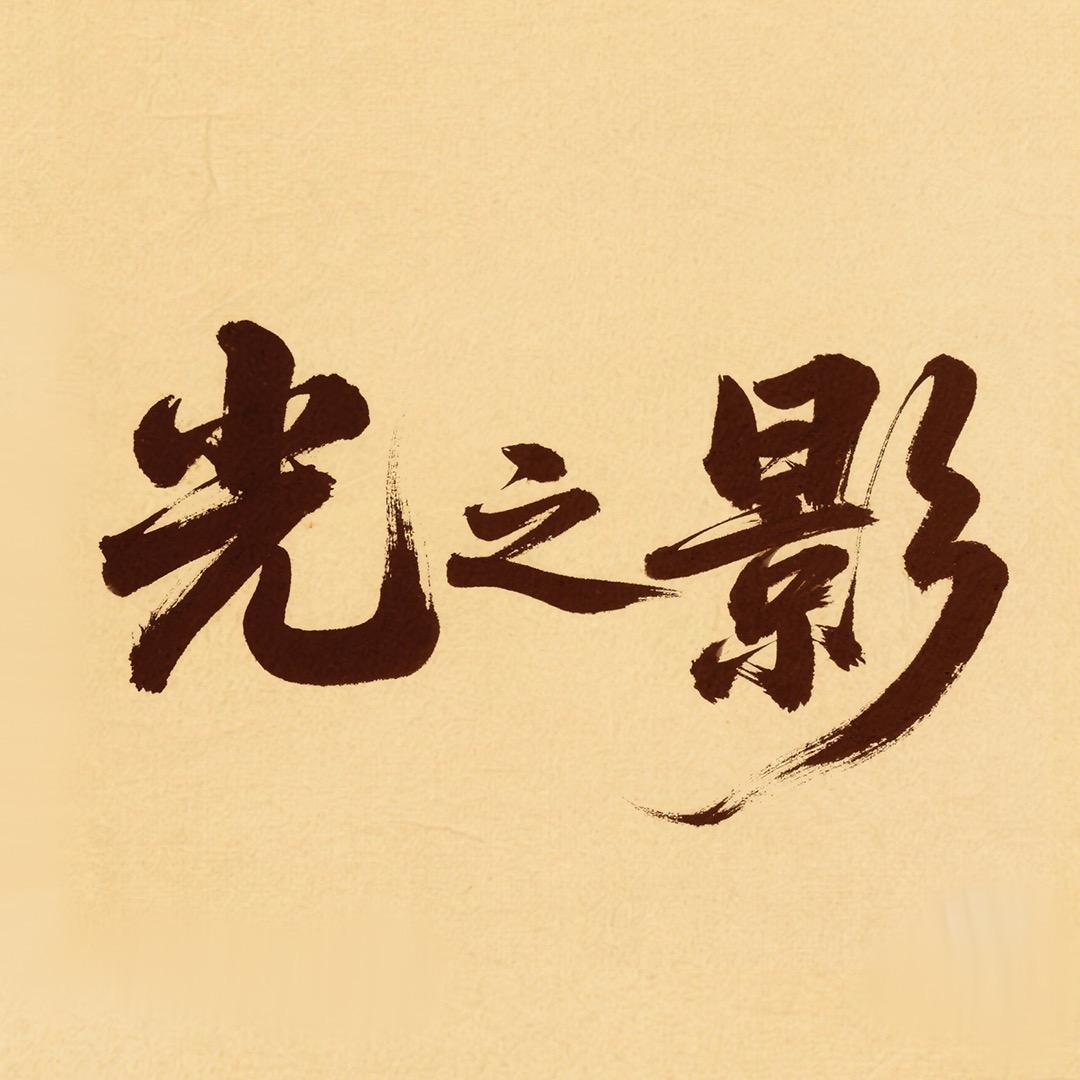 光之影